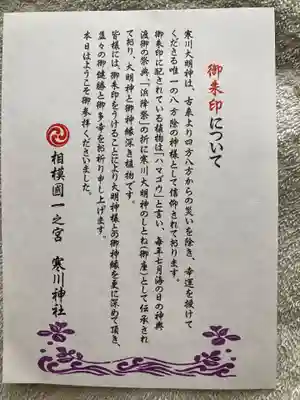 御朱印について
寒川大明神は、古来より四方八方からの災いを除き、幸運を授けて
くださる唯一の八方除の神様として信仰されて居ります。
御朱印に配されている植物は「ハマゴウ」と言い、毎年七月海の日の神輿
渡御の祭典、「浜降祭」の折に寒川大明神のしとね(御座)として伝承され
て居り、大明神と御神縁深き植物です。
皆様には、御朱印をうけることにより大明神様との御神縁を更に深めて頂き、
益々の御健勝と御多幸を祈り申し上げます。
本日はようこそ御参拝くださいました。
相模國一之宮 寒川神社